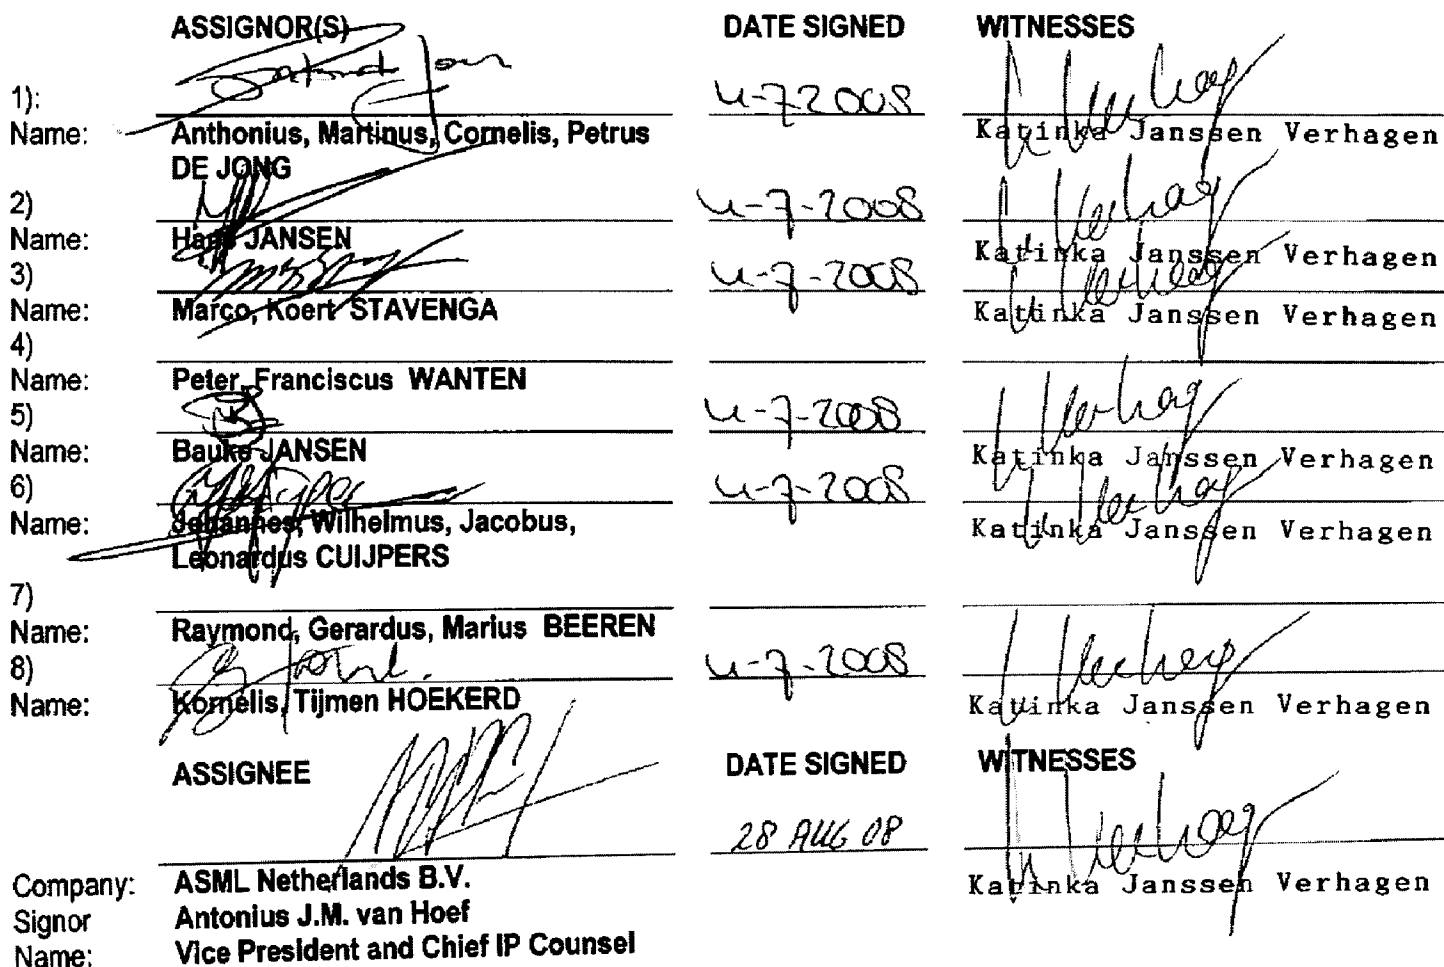 ASSIGNOR(S) DATE SIGNED WITNESSES
1): u-7-2008
Name: Anthonius, Martinus, Cornelis, Petrus Katinka Janssen Verhagen
DE JONG
2) u-7-2008
Name: Hans JANSEN Katinka Janssen Verhagen
3) u-7-2008
Name: Marco, Koert STAVENGA Katinka Janssen Verhagen
4)
Name: Peter, Franciscus WANTEN
5) u-7-2008
Name: Bauke JANSEN Katinka Janssen Verhagen
6) u-7-2008
Name: Johannes, Wilhelmus, Jacobus, Katinka Janssen Verhagen
Leonardus CUIJPERS
7)
Name: Raymond, Gerardus, Marius BEEREN
8) u-7-2008
Name: Kornelis, Tijmen HOEKERD Katinka Janssen Verhagen
ASSIGNEE DATE SIGNED WITNESSES
28 AUG 08
Company: ASML Netherlands B.V. Katinka Janssen Verhagen
Signor Antonius J.M. van Hoef
Name: Vice President and Chief IP Counsel